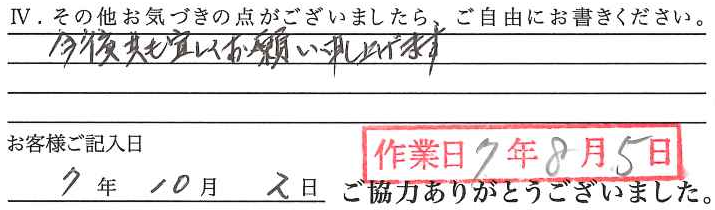 Ⅳ．その他お気づきの点がございましたら、ご自由にお書きください。
今後共も宜しくお願い申し上げます
お客様ご記入日
作業日 7年8月5日
7年10月2日
ご協力ありがとうございました。